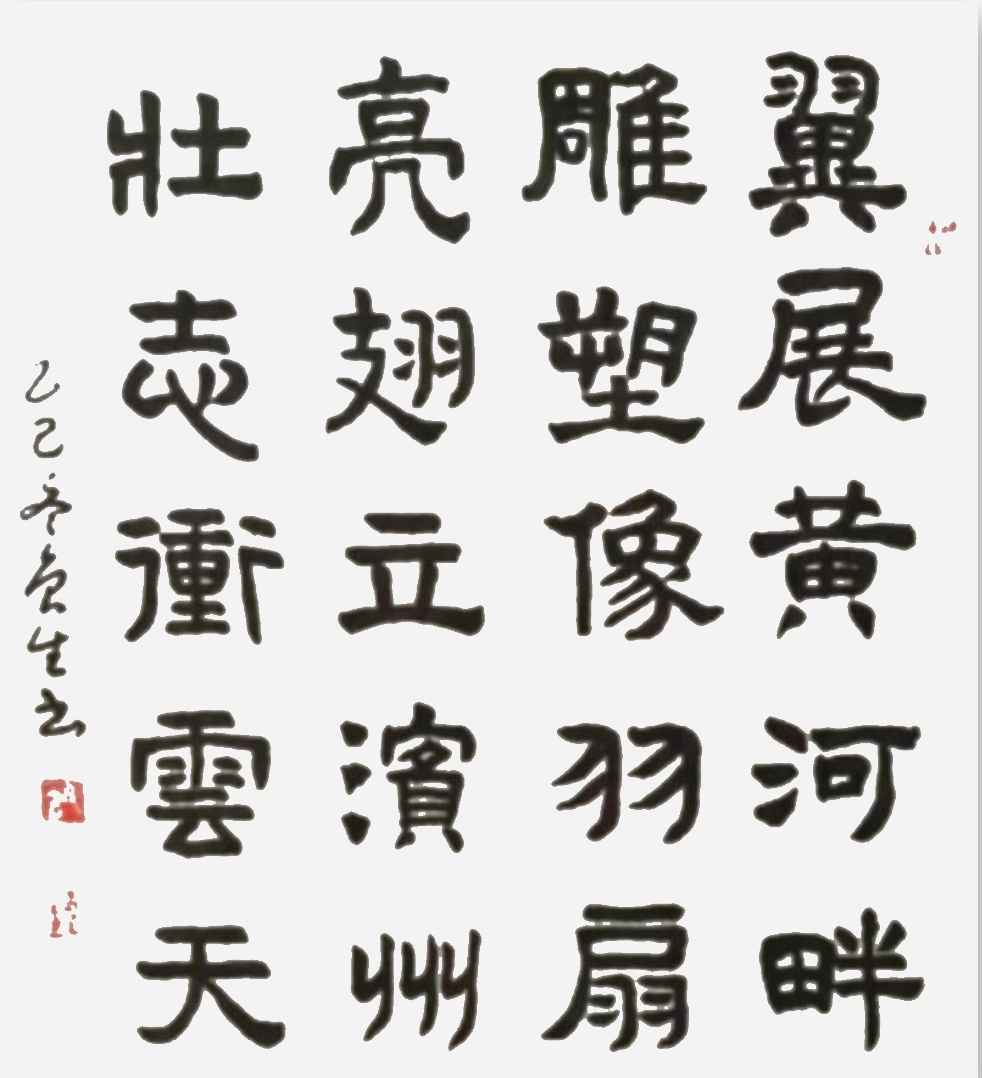 翼展黄河畔
雕塑像羽扇
亮翅立濱州
壯志衝雲天
乙巳冬負生书